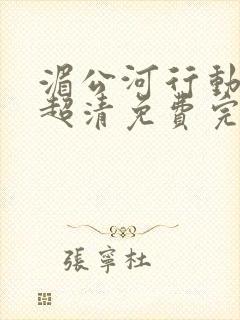 湄公河行動
超清免費完
張寧杜